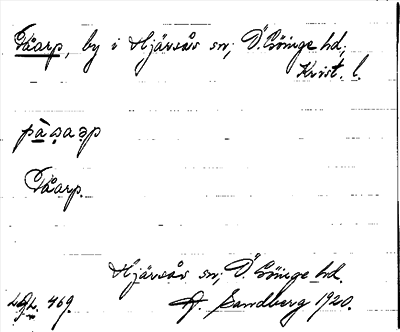 Påarp, by i Hjärsås sn; Ö. Göinge hd;
Krist. l.
Påarp.
Hjärsås sn; Ö. Göinge hd.
469. A. Sandberg 1920.